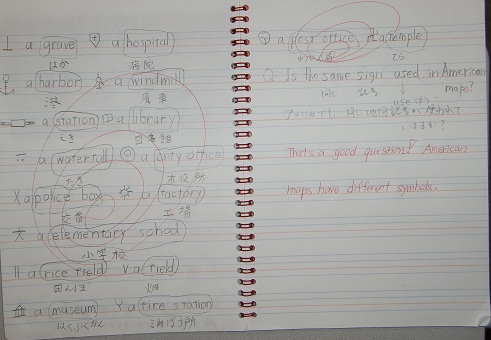 a grave a hospital
はか 病院
a harbor a windmill
港 風車
a station a library
えき 図書館
a waterfall a city office
たき 市役所
X a police box a factory
交番 工場
文 a elementary school
小学校
a rice field a field
田んぼ 畑
a museum a fire station
はくぶつかん 消ぼう所
a post office a temple
てら
Q. Is the same sign used in American maps?
同じ 記号
アメリカでも 同じ地図記号が使われていますか?
That's a good question! American
maps have different symbols.